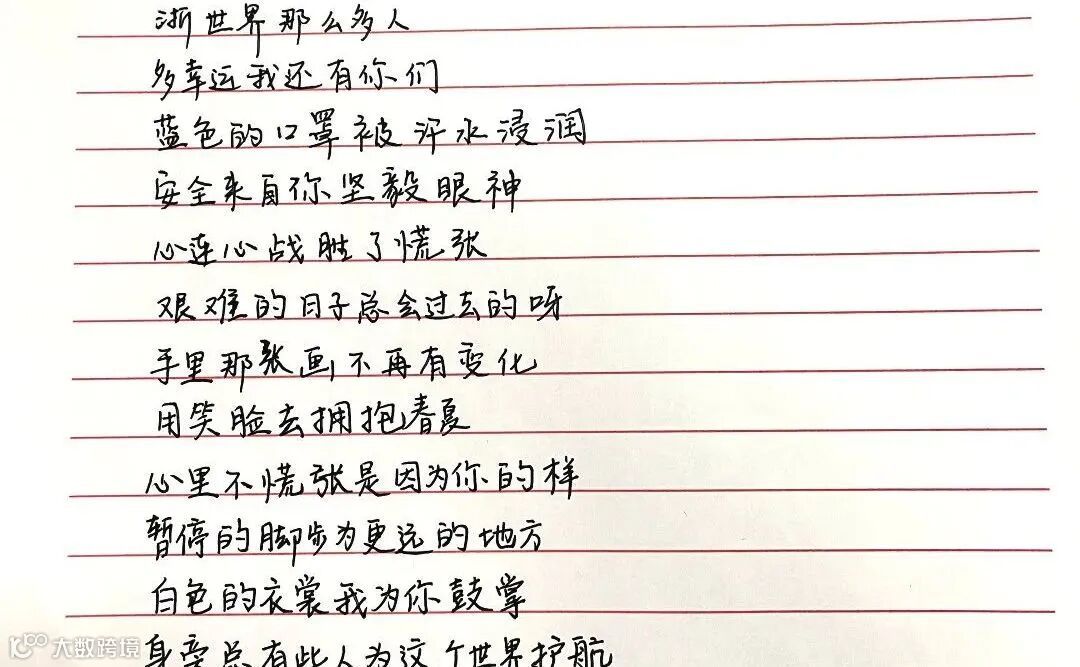 浙世界那么多人
多幸运我还有你们
蓝色的口罩被汗水浸润
安全来自你坚毅眼神
心连心战胜了慌张
艰难的日子总会过去的呀
手里那张画不再有变化
用笑脸去拥抱春夏
心里不慌张是因为你的样
暂停的脚步为更远的地方
白色的衣裳我为你鼓掌
身旁总有些人为这个世界护航
大数跨境